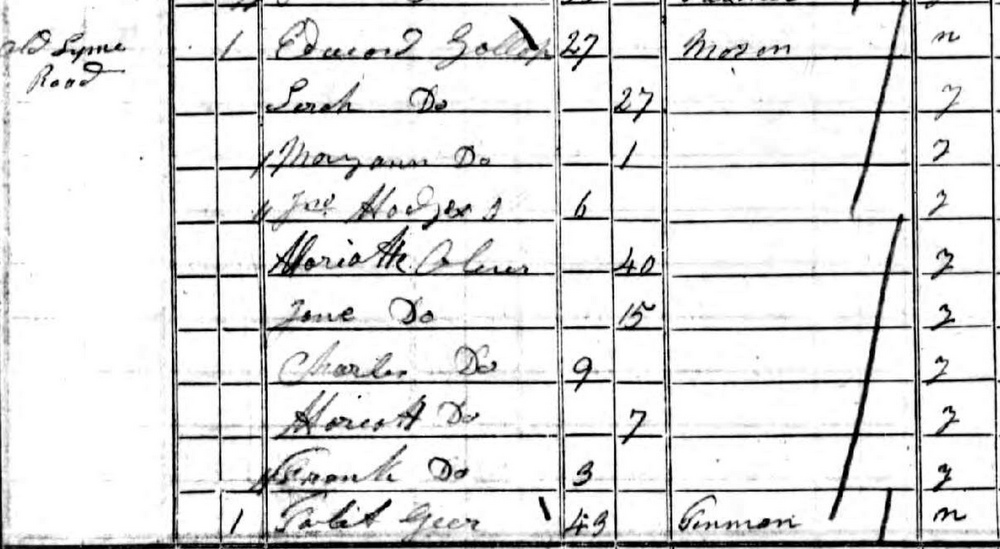 Old Lyme Road 1 Edward Gollop 27 Mason n
Sarah Do 27 y
Maryann Do 1 y
Jno Hodges 6 y
Hariatte 40 y
Jane Do 15 y
Charles Do 9 y
Do 7 y
Frank Do 3 y
1 Geer 43 Tinman n